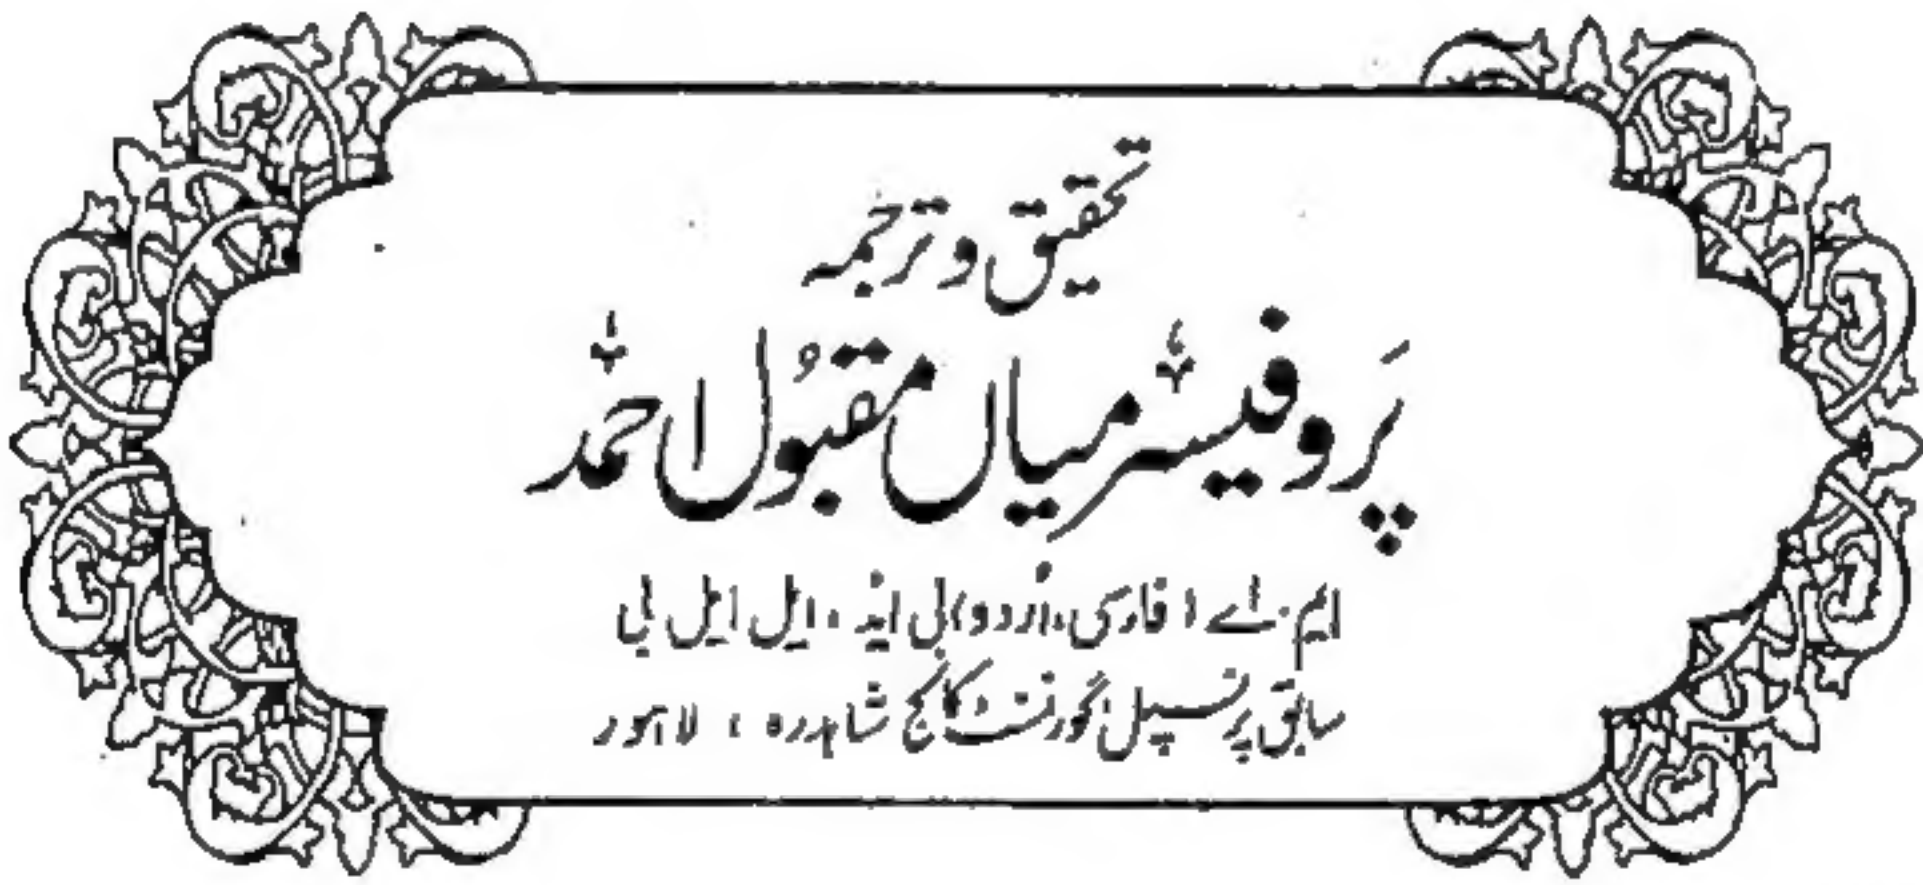 تحقیق و ترجمہ
پَروفیسر میاں مقبُول احمد
ایم۔اے (فارسی، اُردو) بی ایڈ، ایل ایل بی
سابق پرنسپل گورنمنٹ کالج شاہدرہ، لاہور